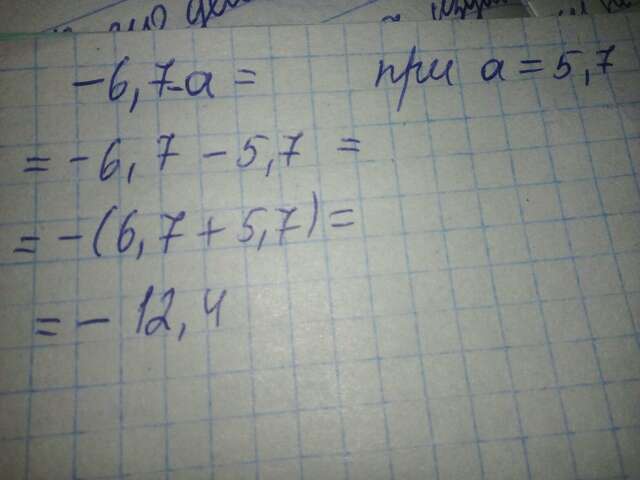 -6,7-a =   при a = 5,7
= -6,7 - 5,7 =
= -(6,7 + 5,7) =
= - 12,4